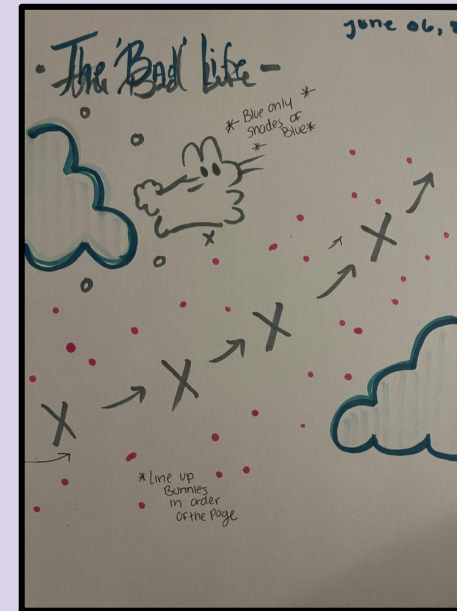 june 06,
- The 'Bad' Life -
* Blue only *
shades of
Blue *
*
X
X
X
X
X
* Line up
Bunnies
in order
of the Page